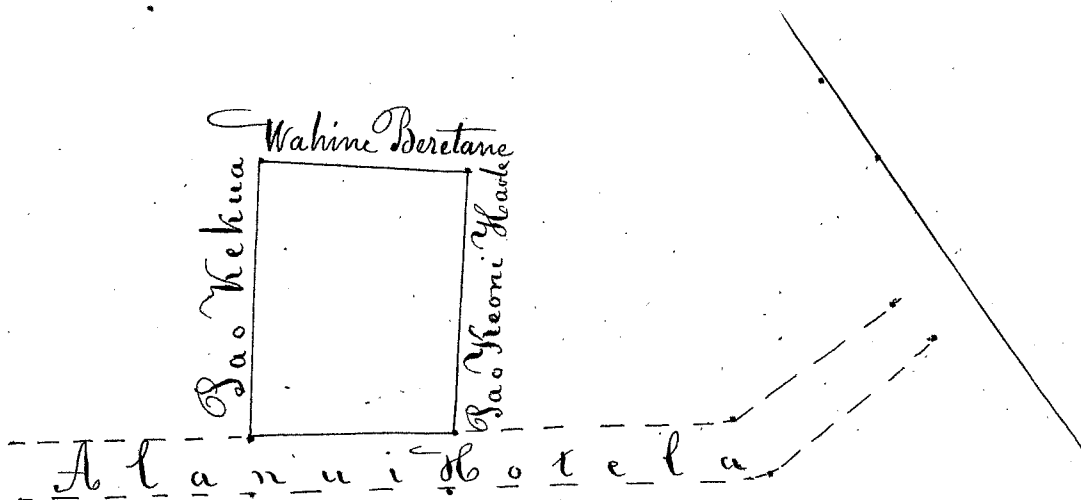 Wahine Beretane
Pa o Kekua
Pa o Keoni Haole
Alanui Hotela